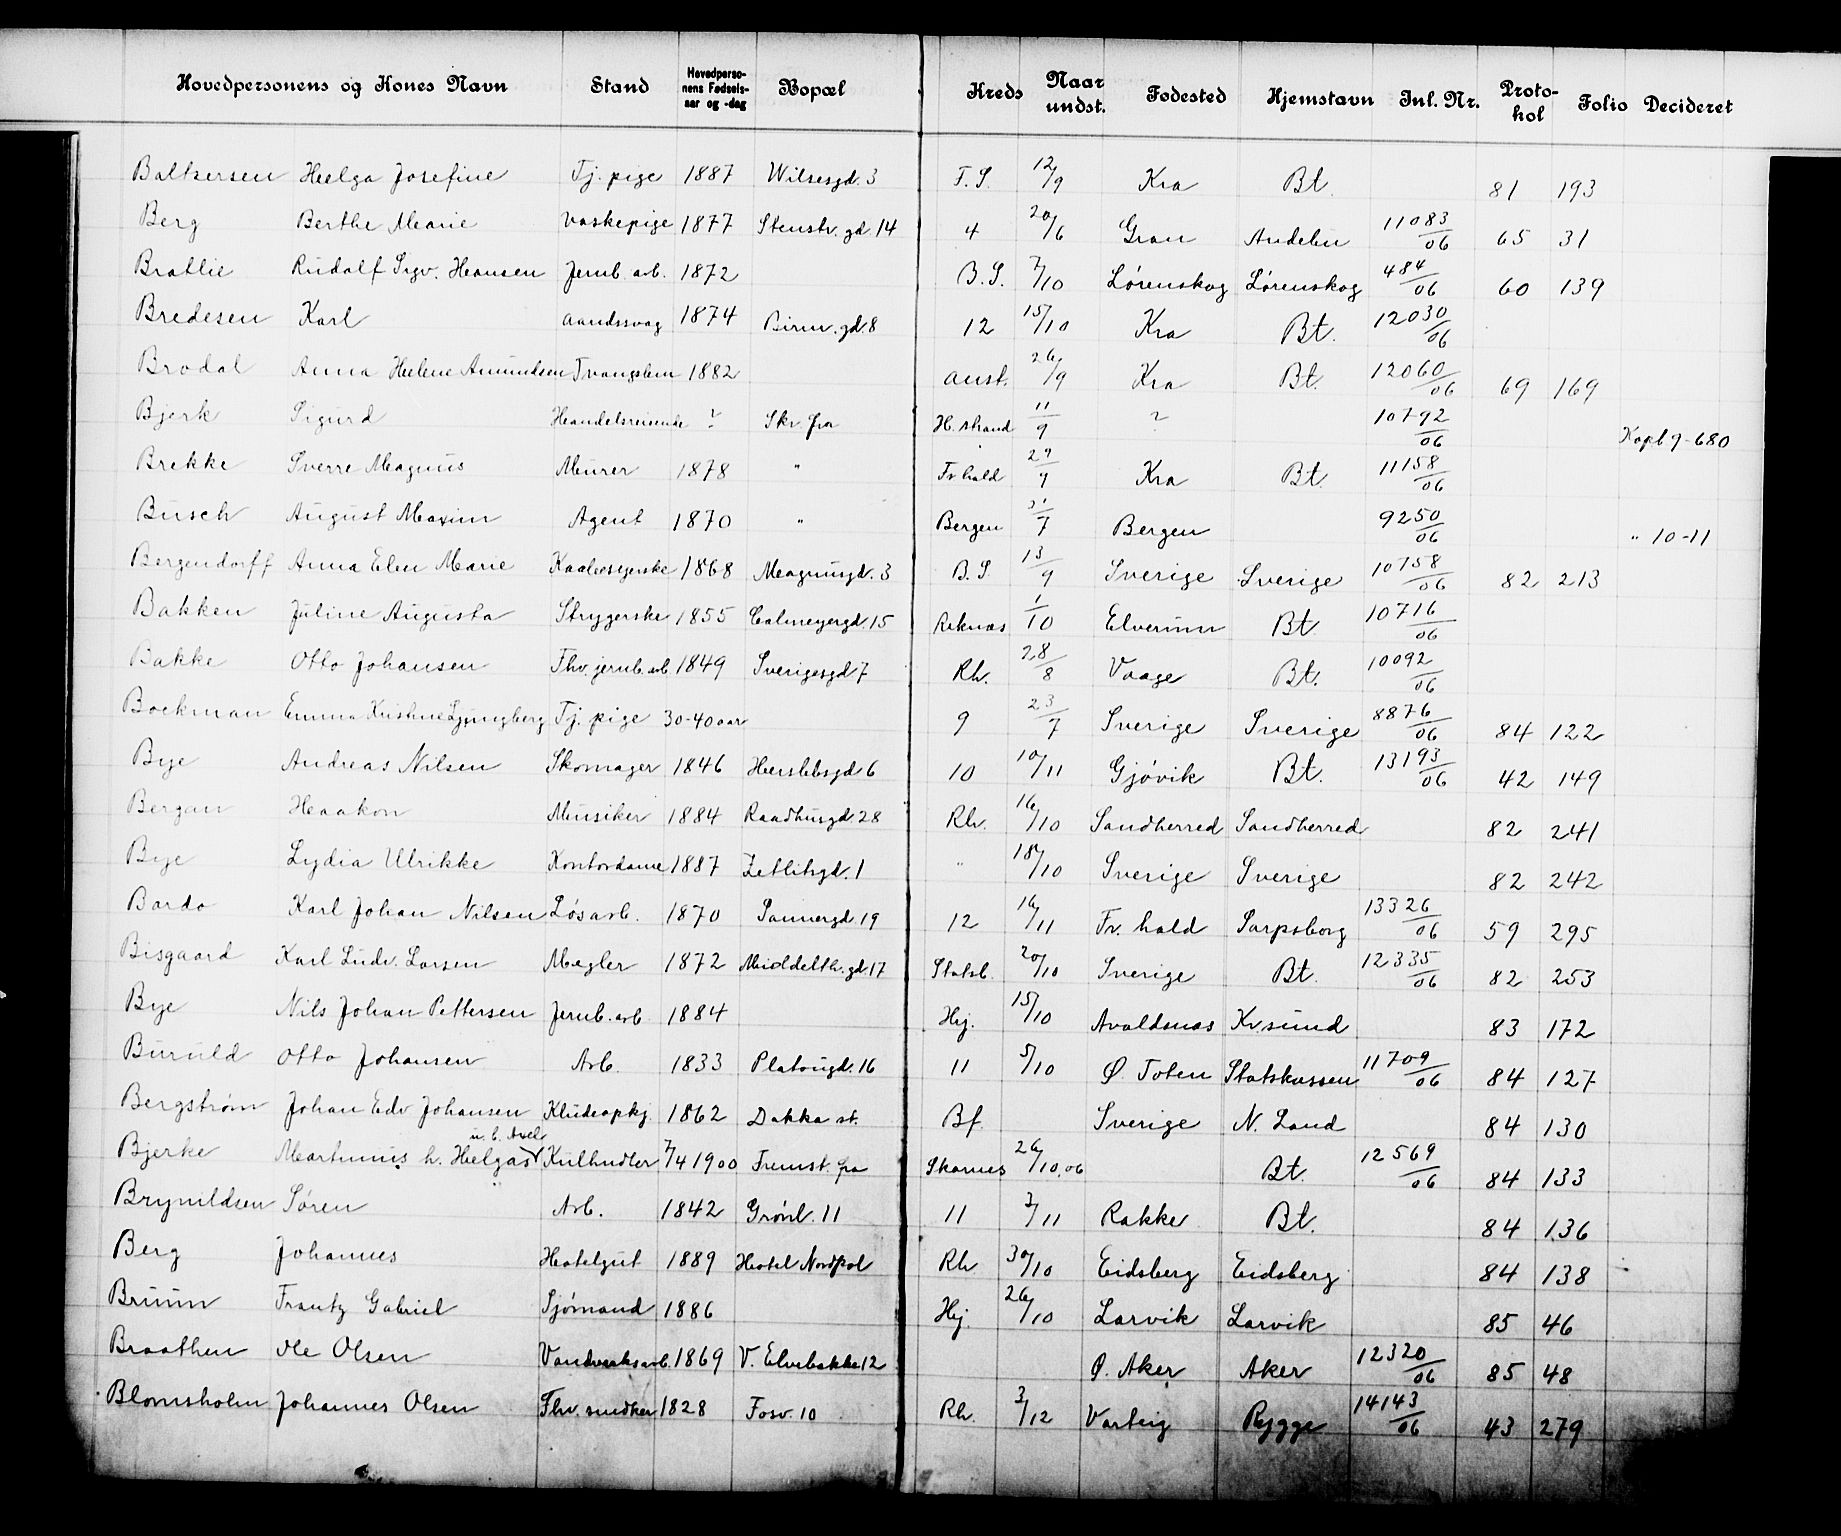 Hovedpersonens og Kones Navn Stand Hovedpersonens Fødselsaar og -dag Bopæl Kreds Naar undst. Fødested Hjemstavn Inl. Nr. Protokol Folio Decideret
Baltzersen Helga Josefine Tj. pige 1887 Wilsesgd. 3 F. S. 12/9 Kra Bt. 81 193
Berg Berthe Marie Vaskepige 1877 Stenstr. gd. 14 4 20/6 Gran Andebu 11083/06 65 31
Bratlie Rudolf Sigv. Hansen Jernb. arb. 1872 B. S. 7/10 Lørenskog Lørenskog 484/06 60 139
Bredesen Karl aandssvag 1874 Birm. gd. 8 12 15/10 Kra Bt. 12030/06
Brodal Anna Helene Amundsen Tvangslem 1882 anst. 26/9 Kra Bt. 12060/06 69 169
Bjerk Sigurd Handelsreisende ? Skr. fra H.strand 11/9 ? 10792/06 Kopb 9-680
Brekke Sverre Magnus Murer 1878 " Fr hald 29/9 Kra Bt. 11158/06
Busch August Maxim Agent 1870 " Bergen 31/7 Bergen 9250/06 " 10-11
Bergendorff Anna Elen Marie Kaabesyerske 1868 Magnusgd. 3 B. S. 13/9 Sverige Sverige 10758/06 82 213
Bakken Juline Augusta Strygerske 1855 Calmeyergd. 15 Reknæs 1/10 Elverum Bt. 10716/06
Bakke Otto Johansen Fhv. jernb. arb. 1849 Sverigesgd 7 Rh. 28/8 Vaage Bt. 10092/06
Boekman Emma Kristine Ljungberg Tj. pige 30-40 aar 9 23/7 Sverige Sverige 8876/06 84 122
Bye Andreas Nilsen Skomager 1846 Herslebsgd 6 10 10/11 Gjøvik Bt. 13193/06 42 149
Bergan Haakon Musiker 1884 Raadhusgd. 28 Rh. 16/10 Sandherred Sandherred 82 241
Bye Lydia Ulrikke Kontordame 1887 Zetlitzgd. 1 " 18/10 Sverige Sverige 82 242
Bardo Karl Johan Nilsen Løsarb. 1870 Sannergd 19 12 16/11 Fr. hald Sarpsborg 13326/06 59 295
Bisgaard Karl Ludv. Larsen Mægler 1872 Middelth. gd. 17 Statsb. 20/10 Sverige Bt. 12335/06 82 253
Bye Nils Johan Pettersen Jernb. arb 1884 Hj. 15/10 Avaldsnæs Kv.sund 83 172
Buruld Otto Johansen Arb. 1833 Platougd. 16 11 5/10 Ø. Toten Statskassen 11709/06 84 127
Bergstrøm Johan Edv Johansen Kludeopkj. 1862 Dakka st. Bf. Sverige N. Land 84 130
u. b. Axel
Bjerke Martinius h. Helgas Kulhndler 7/4 1900 Fremst. fra Skarnes 26/10.06 Bt. 12569/06 84 133
Brynildsen Søren Arb. 1842 Grønl. 11 11 7/11 Rakke Bt. 84 136
Berg Johannes Hotelgut 1889 Hotel Nordpol Rh 30/10 Eidsberg Eidsberg 84 138
Bruun Frantz Gabriel Sjømand 1886 Hj. 26/10 Larvik Larvik 85 46
Braathen Ole Olsen Vandværksarb. 1869 V. Elvebakke 12 Ø. Aker Aker 12320/06 85 48
Blomsholm Johannes Olsen Fhv. snedker 1828 Fosv. 10 Rh. 3/12 Varteig Rygge 14143/06 43 279